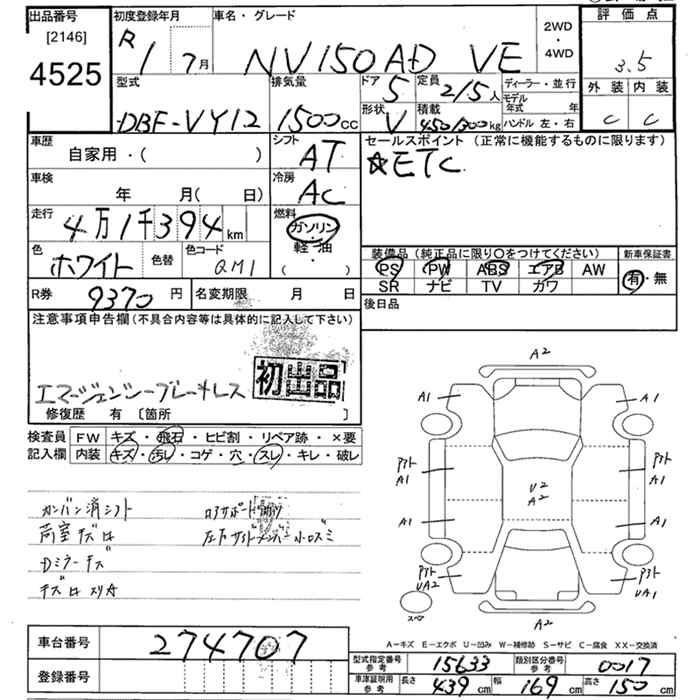 出品番号
[2146]
4525
初度登録年月
R 1 7月
車名・グレード
NV150AD VE
2WD
・
4WD
評価点
3.5
型式
DBF-VY12
排気量
1500cc
ドア
5
定員
2/5人
形状
V
積載
450/300kg
ディーラー・並行
モデル年式 年
ハンドル 左・右
外装 内装
C C
車歴
自家用・( )
シフト
AT
セールスポイント (正常に機能するものに限ります)
☆ETC
車検
年 月(日)
冷房
AC
走行
4万1千394km
燃料
ガソリン
軽・油
( )
色
ホワイト
色替
色コード
QM1
装備品 (純正品に限り○をつけてください)
PS PW ABS エアB AW
SR ナビ TV カワ
新車保証書
有・無
R券
9370円
名変期限 月 日
後日品
注意事項申告欄(不具合内容等は具体的に記入して下さい)
エマージェンシーブレーキレス
初出品
修復歴 有 〔箇所 〕
検査員記入欄
FW キズ・飛石・ヒビ割・リペア跡・×要
内装 キズ・汚レ・コゲ・穴・スレ・キレ・破レ
カンバン消シフト
荷室キズ
Dミラーキズ
A2
A1 A1
A1 A1
U2
A2
A1 A1
UA2 UA1
A2
スペア
A-キズ E-エクボ U-凹み W-補修跡 S-サビ C-腐食 XX-交換済
車台番号
274707
登録番号
型式指定番号参考
15633
類別区分番号参考
0017
車庫証明用参考
長さ 439cm 幅 169cm 高さ 150cm